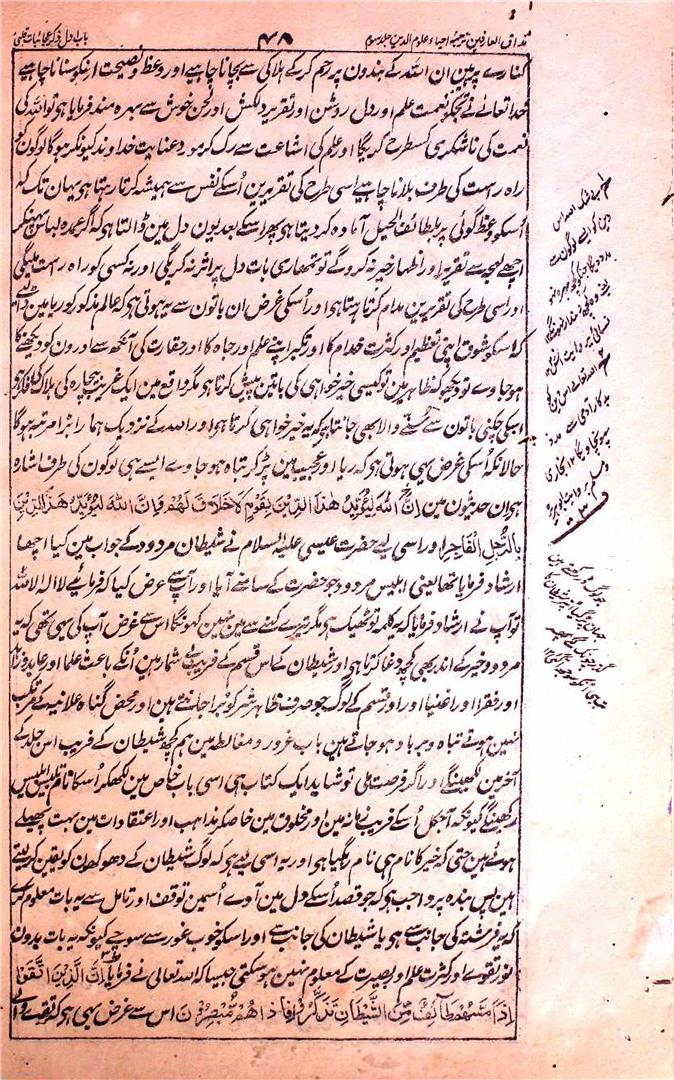 مذاق العارفین ترجمۂ احیاء علوم الدین جلد سوم
۴۸
باب اول ذکر عجائبات قلبی
کنارے پر ہین ان اللہ کے بندون پر رحم کر کے ہلاکی سے بچانا چاہیے اور وعظ و نصیحت انکو سنانا چاہیے
خدا تعالے نے تجکو نعمت علم اور دل روشن اور تقریر دلکش اور لحن خوش سے بہرہ مند فرمایا ہو تو اللہ کی
نعمت کی ناشکری کسطرح کریگا اور علم کی اشاعت سے رک کر مورد عنایت خداوند کیونکر ہوگا لوگونکو
راہ راست کی طرف بلانا چاہیے اسی طرح کی تقریرین اُسکے نفس سے ہمیشہ کرتا رہتا ہی یہان تک کہ
اُسکو وعظ گوئی پر بلطائف الحیل آمادہ کر دیتا ہی پھر اسکے بعد یون دل مین ڈالتا ہی کہ اگر عمدہ لباس پہنکر
اچھے لہجہ سے تقریر اور اظہار خیر نہ کروگے تو تمھاری بات دل پر اثر نہ کریگی اور نہ کسی کو راہ راست ملیگی
اور اسی طرح کی تقریرین مدام کرتا رہتا ہی اور اُسکی غرض ان باتون سے یہ ہوتی ہی کہ عالم مذکور کو ریا مین ڈالے
کہ اسکو شوق اپنی تعظیم اور کثرت خدام کا اور تکبر اپنے علم اور جاہ کا اور حقارت کی آنکھ سے اورون کو دیکھنے کا
ہو جاوے تو دیکھو کہ ظاہر مین تو کیسی خیر خواہی کی باتین پیش کرتا ہو مگر واقع مین ایک غریب بیچارہ کی ہلاکی کا
اسکی چکنی باتون سے سننے والا بھی جانتا ہی کہ یہ خیر خواہی کرتا ہو اور اللہ کے نزدیک ہمارا بڑا مرتبہ ہوگا
حالانکہ اُسکی غرض یہی ہوتی ہی کہ ریا اور عجب مین پڑ کر تباہ ہو جاوے ایسے ہی لوگون کی طرف اشارہ
ہی ان حدیثون مین اِنَّ اللہَ لَیُؤَیِّدُ ھٰذَا الدِّیْنَ بِقَوْمٍ لَا خَلَاقَ لَھُمْ وَاِنَّ اللہَ لَیُؤَیِّدُ ھٰذَا الدِّیْنَ
بِالرَّجُلِ الْفَاجِرِ اور اسی لیے حضرت عیسی علیہ السلام نے شیطان مردود کے جواب مین کیا اچھا
ارشاد فرمایا تھا یعنی ابلیس مردود جو حضرت کے سامنے آیا اور آپ سے عرض کیا کہ فرمائیے لا الہ الا اللہ
تو آپ نے ارشاد فرمایا کہ یہ کلمہ تو ٹھیک ہی مگر تیرے کہنے سے مین نہین کہونگا اس سے غرض آپ کی یہی تھی کہ یہ
مردود خیر کے اندر بھی کچھ دغا کرتا ہی اور شیطان کے اس قسم کے فریب بے شمار ہین اُنکے باعث علما اور عابد و زاہد
اور فقرا اور اغنیا اور اور قسم کے لوگ جو صرف ظاہر شر کو برا جانتے ہین اور محض گناہ علانیہ کے مرتکب
نہین ہوتے تباہ و برباد ہو جاتے ہین باب غرور و مغالطہ مین ہم کچھ شیطان کے فریب اس جلد کے
آخر مین لکھینگے اور اگر فرصت ملی تو شاید ایک کتاب ہی اسی باب خاص مین لکھکر اُسکا نام تلبیس ابلیس
رکھینگے کیونکہ آجکل اُسکے فریب زمانہ مین اور مخلوق مین خاصکر مذاہب اور اعتقادات مین بہت پھیلے
ہوئے ہین حتی کہ خیر کا نام ہی نام رہگیا ہی اور یہ اسی لیے ہی کہ لوگ شیطان کے دھوکھون کو یقین کر لیتے
ہین پس بندہ پر واجب ہی کہ جو قصد اُسکے دل مین آوے اُسمین توقف اور تامل سے یہ بات معلوم کرے
کہ یہ فرشتہ کی جانب سے ہی یا شیطان کی جانب سے اور اسکو خوب غور سے سوچے کیونکہ یہ بات بدون
نور تقوے اور کثرت علم اور بصیرت کے معلوم نہین ہو سکتی جیسا کہ اللہ تعالی نے فرمایا اِنَّ الَّذِیْنَ اتَّقَوْا
اِذَا مَسَّھُمْ طَآئِفٌ مِّنَ الشَّیْطَانِ تَذَکَّرُوْا فَاِذَا ھُمْ مُّبْصِرُوْنَ اس سے غرض یہی ہی کہ تقوے والے
بے شک اللہ اس
دین کو ایسے لوگون سے
مدد دیگا جنکو کچھ بہرہ نہو